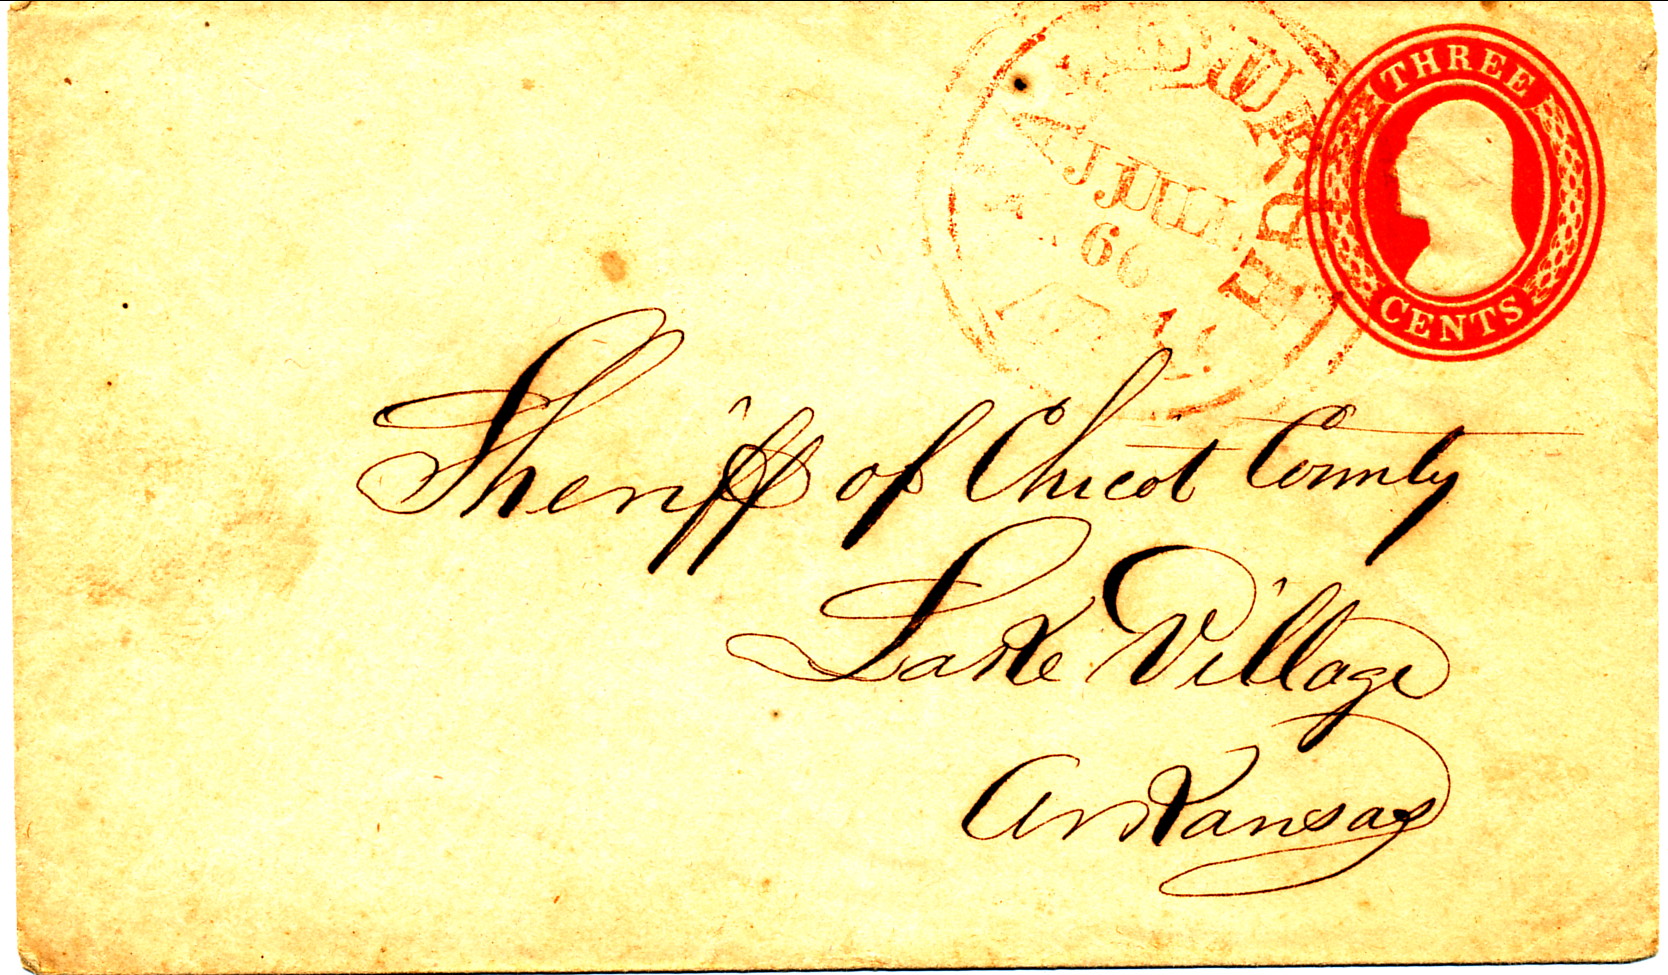 THREE
CENTS
JUL
60
Sheriff of Chicot County
Lake Village
Arkansas